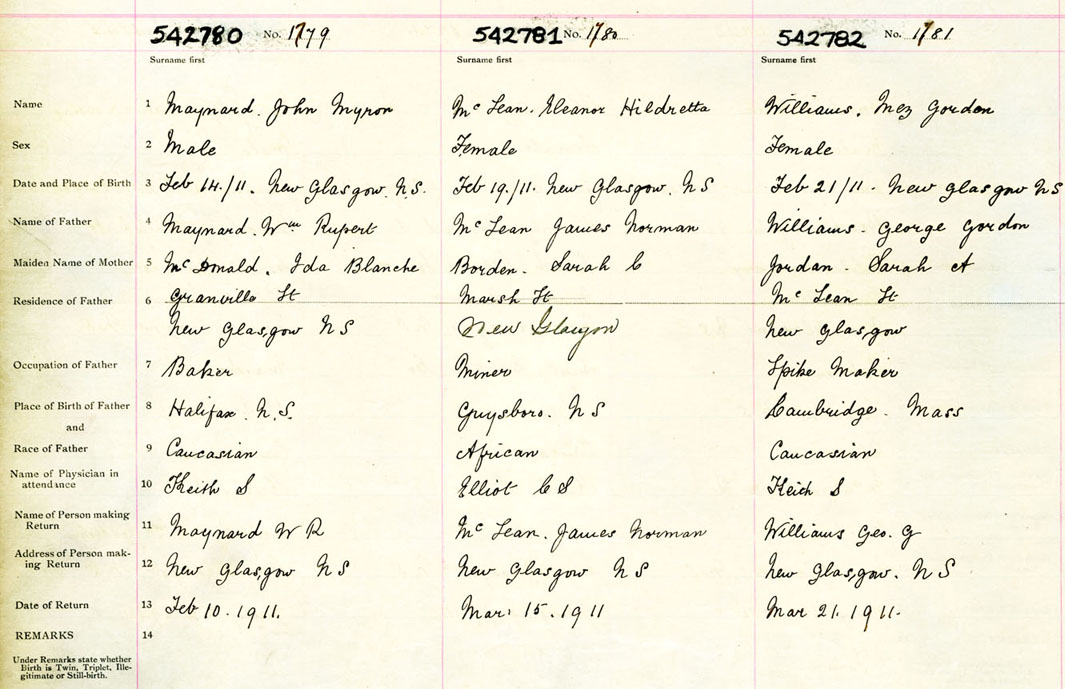 542780 No. 1779 542781 No. 1780 542782 No. 1781
Surname first Surname first Surname first
Name 1 Maynard. John Myron Mc Lean. Eleanor Hildretta Williams. Mez Gordon
Sex 2 Male Female Female
Date and Place of Birth 3 Feb 14./11. New Glasgow. N.S. Feb 19./11. New Glasgow. N S Feb 21/11 - New Glasgow N S
Name of Father 4 Maynard. Wm Rupert Mc Lean James Norman Williams - George Gordon
Maiden Name of Mother 5 Mc Donald. Ida Blanche Borden - Sarah C Jordan - Sarah A
Residence of Father 6 Granville St Marsh St Mc Lean St
New Glasgow N S New Glasgow New Glasgow
Occupation of Father 7 Baker Miner Spike Maker
Place of Birth of Father 8 Halifax. N.S. Guysboro. N S Cambridge. Mass
and
Race of Father 9 Caucasian African Caucasian
Name of Physician in
attendance 10 Keith S Elliot C S Keith S
Name of Person making
Return 11 Maynard W R Mc Lean. James Norman Williams Geo. G
Address of Person mak-
ing Return 12 New Glasgow N S New Glasgow N S New Glasgow. N S
Date of Return 13 Feb 10. 1911. Mar. 15. 1911 Mar 21. 1911.
REMARKS 14
Under Remarks state whether
Birth is Twin, Triplet, Ille-
gitimate or Still-birth.